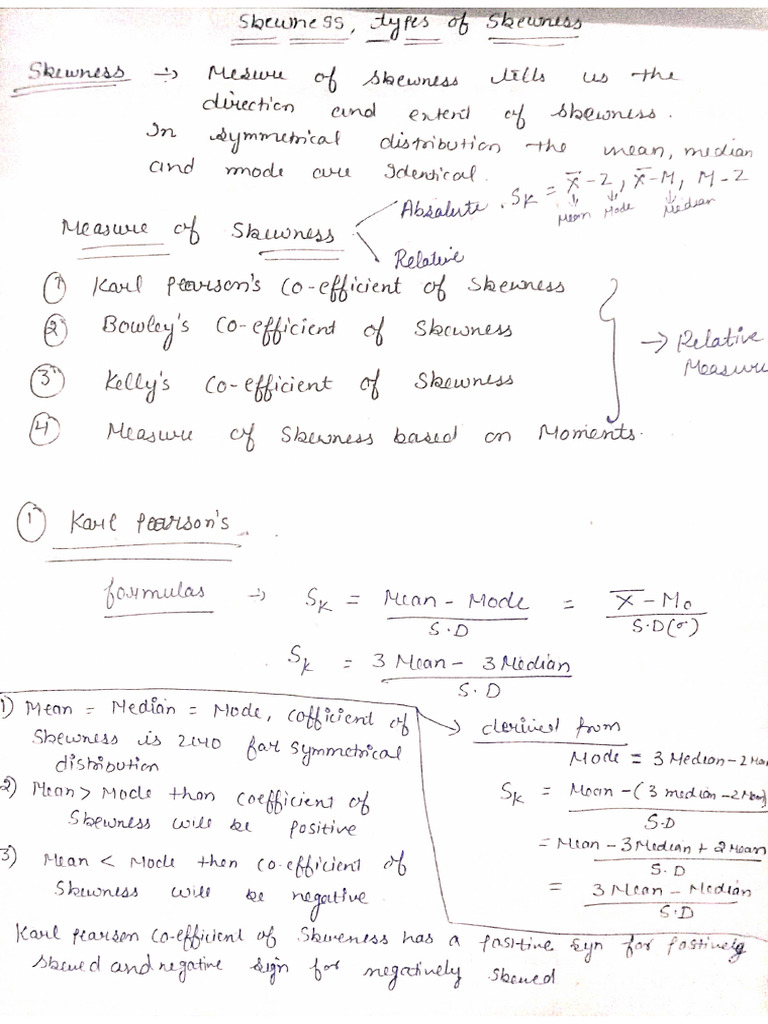 Skewness, types of Skewness
Skewness → Mesure of skewness tells us the
direction and extent of skewness.
In symmetrical distribution the mean, median
and mode are Identical.
Absolute . SK = X̄ - Z , X̄ - M, M - Z
Mean Mode Median
Measure of Skewness
Relative
① Karl Pearson's Co-efficient of Skewness
② Bowley's Co-efficient of Skewness
③ Kelly's Co-efficient of Skewness
④ Measure of Skewness based on Moments.
→ Relative
Measure
① Karl Pearson's
formulas → SK = Mean - Mode / S.D = X̄ - Mo / S.D(σ)
SK = 3 Mean - 3 Median / S.D
1) Mean = Median = Mode, cofficient of
Skewness is zero for symmetrical
distribution
2) Mean > Mode then coefficient of
Skewness will be positive
3) Mean < Mode then co-efficient of
Skewness will be negative.
→ derived from
Mode = 3 Median - 2 Mean
SK = Mean - (3 median - 2 Mean) / S.D
= Mean - 3 Median + 2 Mean / S.D
= 3 Mean - Median / S.D
Karl pearson co-efficient of Skweness has a positive sign for postively
skewed and negative sign for negatively skewed